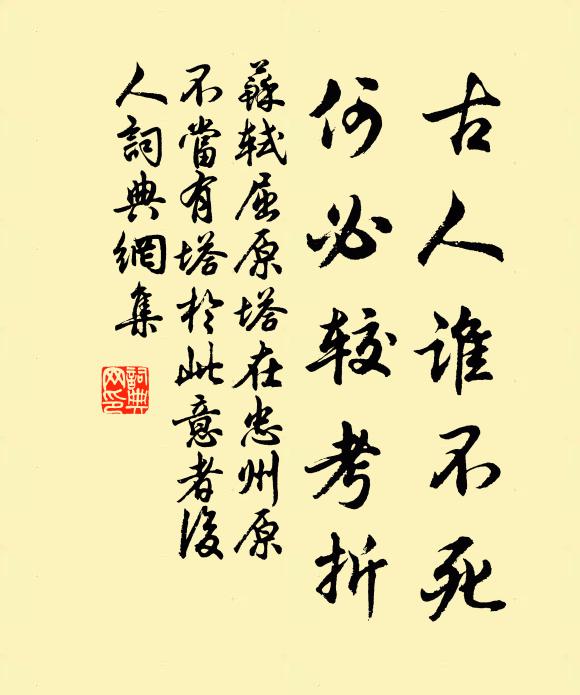 古人谁不死
何必较考折
蘇軾屈原塔在忠州原
不當有塔於此意者後
人詞典網集
詞典
网印